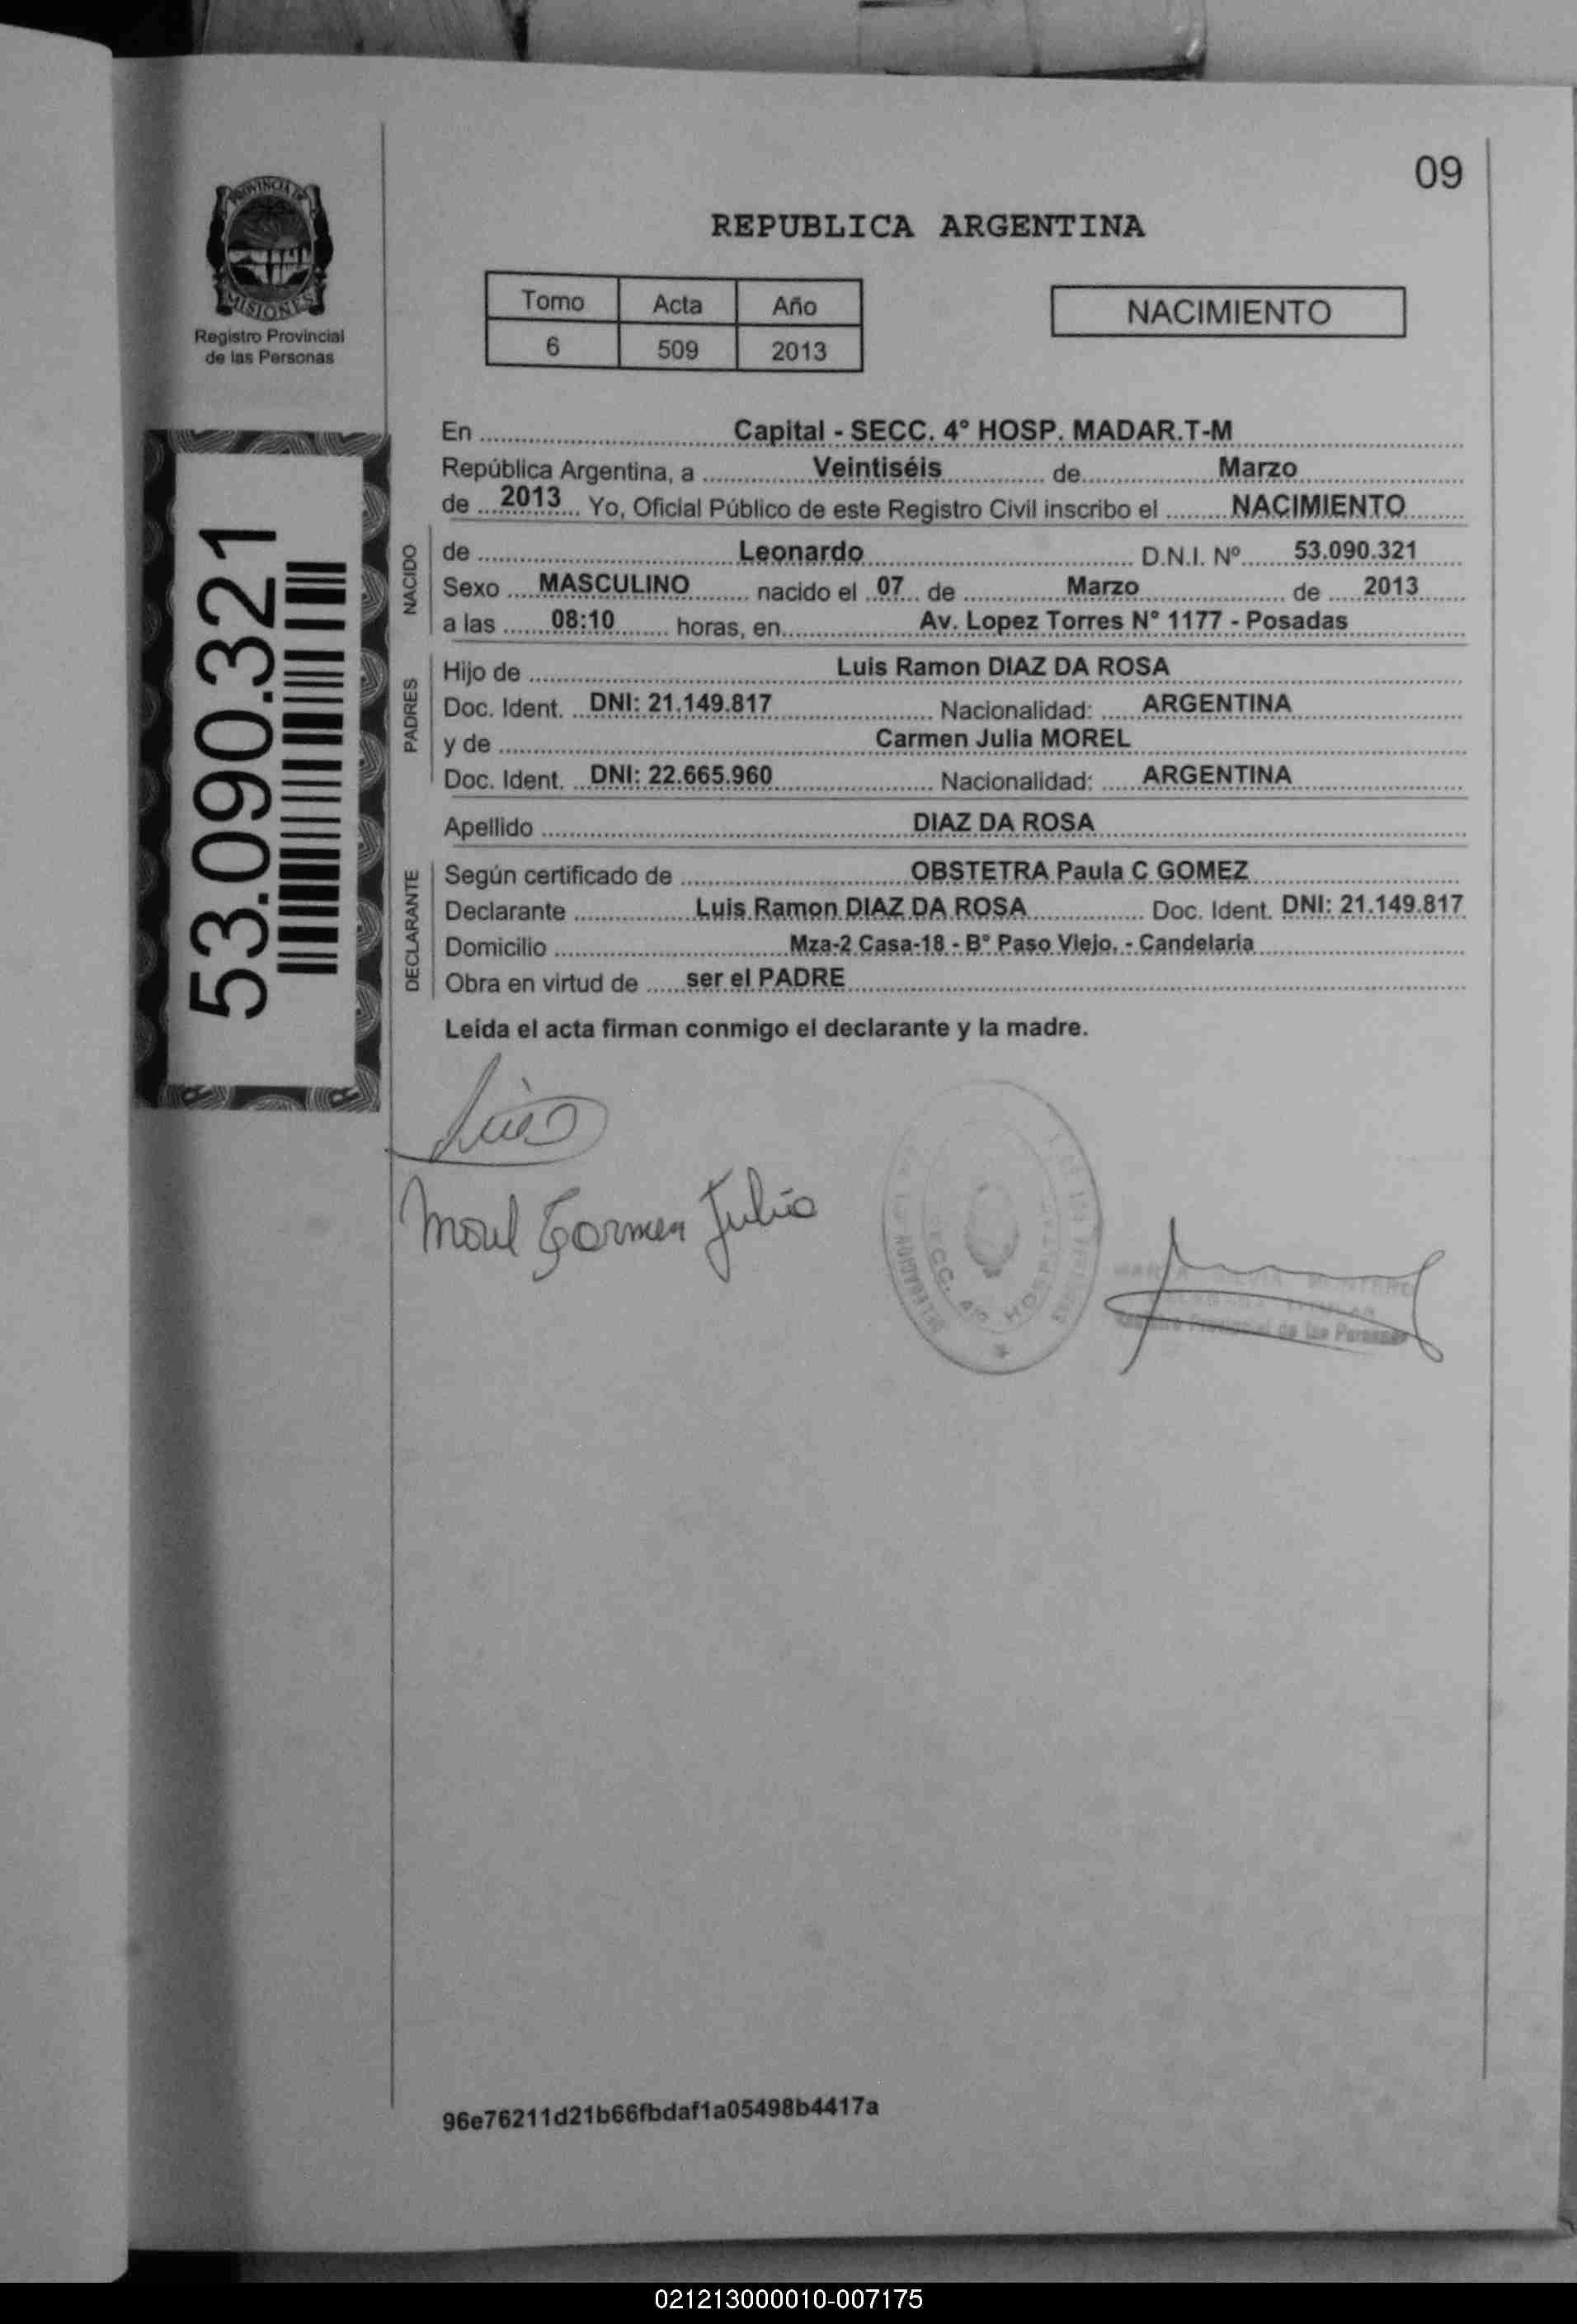 09
PROVINCIA DE
MISIONES
Registro Provincial
de las Personas
REPUBLICA ARGENTINA
Tomo Acta Año
6 509 2013
NACIMIENTO
53.090.321
En Capital - SECC. 4° HOSP. MADAR.T-M
República Argentina, a Veintiséis de Marzo
de 2013 Yo, Oficial Público de este Registro Civil inscribo el NACIMIENTO
NACIDO
de Leonardo D.N.I. Nº 53.090.321
Sexo MASCULINO nacido el 07 de Marzo de 2013
a las 08:10 horas, en Av. Lopez Torres N° 1177 - Posadas
PADRES
Hijo de Luis Ramon DIAZ DA ROSA
Doc. Ident. DNI: 21.149.817 Nacionalidad: ARGENTINA
y de Carmen Julia MOREL
Doc. Ident. DNI: 22.665.960 Nacionalidad: ARGENTINA
Apellido DIAZ DA ROSA
DECLARANTE
Según certificado de OBSTETRA Paula C GOMEZ
Declarante Luis Ramon DIAZ DA ROSA Doc. Ident. DNI: 21.149.817
Domicilio Mza-2 Casa-18 - B° Paso Viejo, - Candelaria
Obra en virtud de ser el PADRE
Leída el acta firman conmigo el declarante y la madre.
Luis
Morel Carmen Julia
DELEGACION
SECC. 4a HOSPITAL
de las Personas
96e76211d21b66fbdaf1a05498b4417a
021213000010-007175